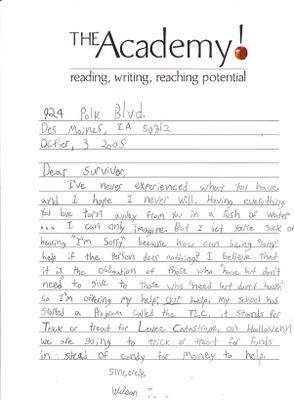 THE Academy!
reading, writing, reaching potential
924 Polk Blvd.
Des Moines, IA 50312
Octber, 3 2005
Dear Survivor,
I've never experienced what you have
and I hope I never will. Having everything
you love torn away from you in a flash of water
... I can only imagine. But I bet you're sick of
hearing "I'm Sorry" because how can being "sorry"
help if the person does nothing? I believe that
it is the obligation of those who "have but don't
need" to give to those who "need but don't have"
so I'm offering my help; our help. My school has
started a program called the TLC, it stands for
Trick or treat for Levee Catastrophe, on Halloween
we are going to trick or treat for funds
in stead of candy for money to help.
Sincerely,
Wilson